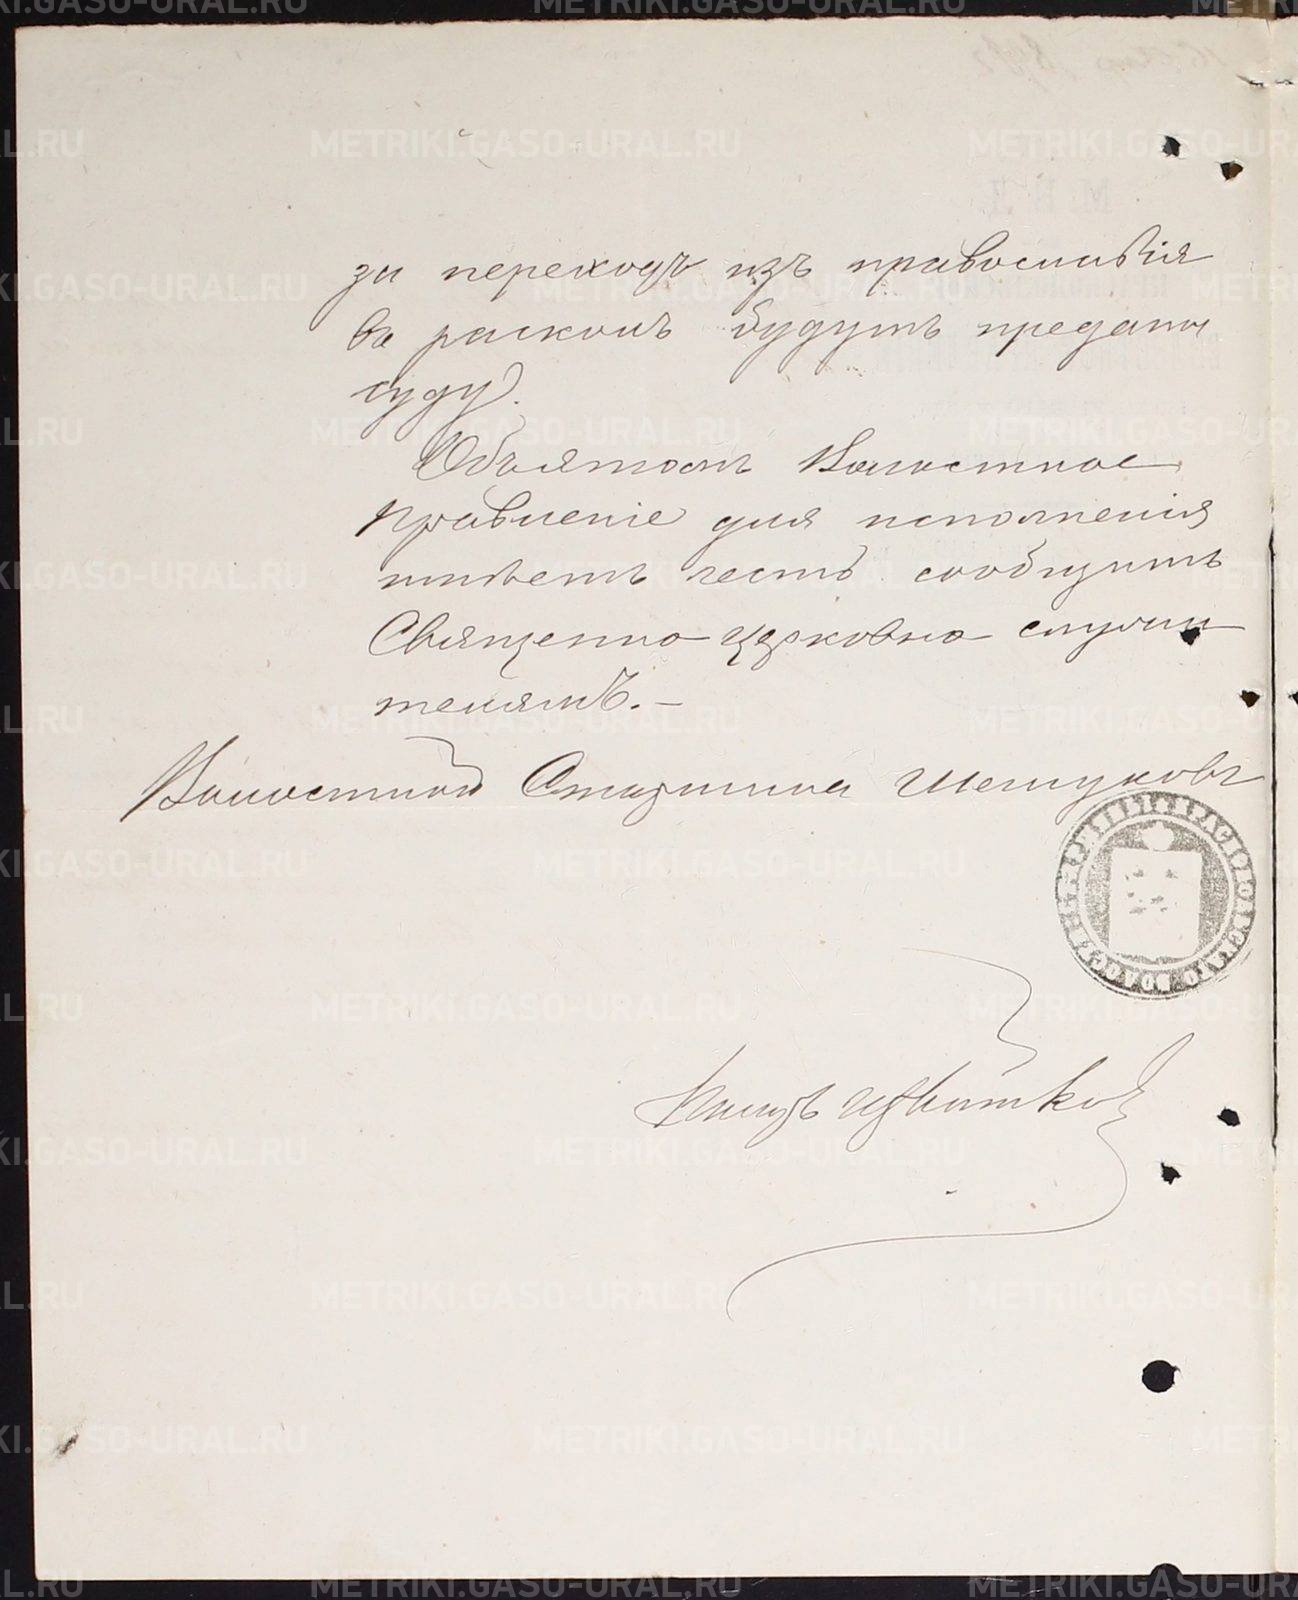 за переходъ изъ православія
въ расколъ будутъ преданы
суду.
Объ этомъ Волостное
Правленіе для исполненія
имѣетъ честь сообщить
Священно-церковно-служи
телямъ.—
Волостной Старшина Шешуковъ
METRIKI.GASO-URAL.RU